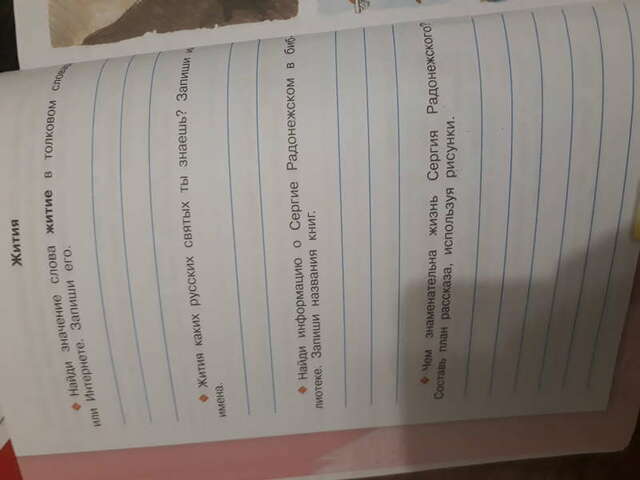 Жития
◆ Найди значение слова житие в толковом
или Интернете. Запиши его.
◆ Жития каких русских святых ты знаешь? Запиши и
имена.
◆ Найди информацию о Сергие Радонежском в биб-
лиотеке. Запиши названия книг.
◆ Чем знаменательна жизнь Сергия Радонежского?
Составь план рассказа, используя рисунки.